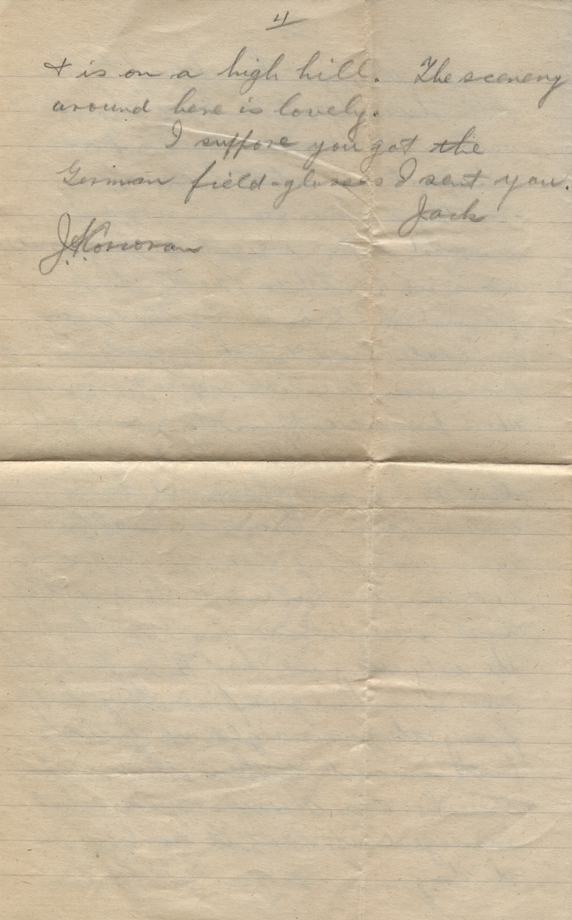 4
& is on a high hill. The scenery
around here is lovely.
I suppose you got the
German field-glasses I sent you.
Jack
J.A. Corcoran